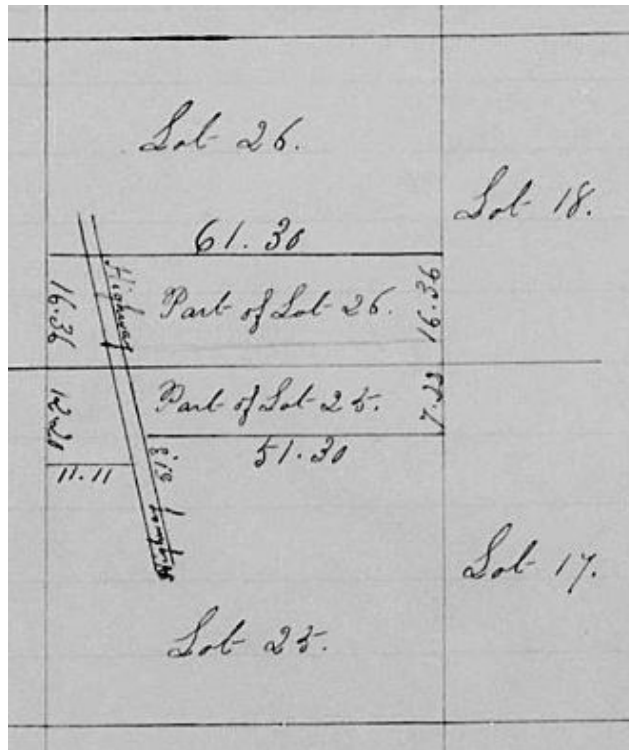 Lot 26.
Lot 18.
61.30
Highway
Part of Lot 26.
16.36
16.36
Part of Lot 25.
51.30
11.11
Lot 17.
Lot 25.